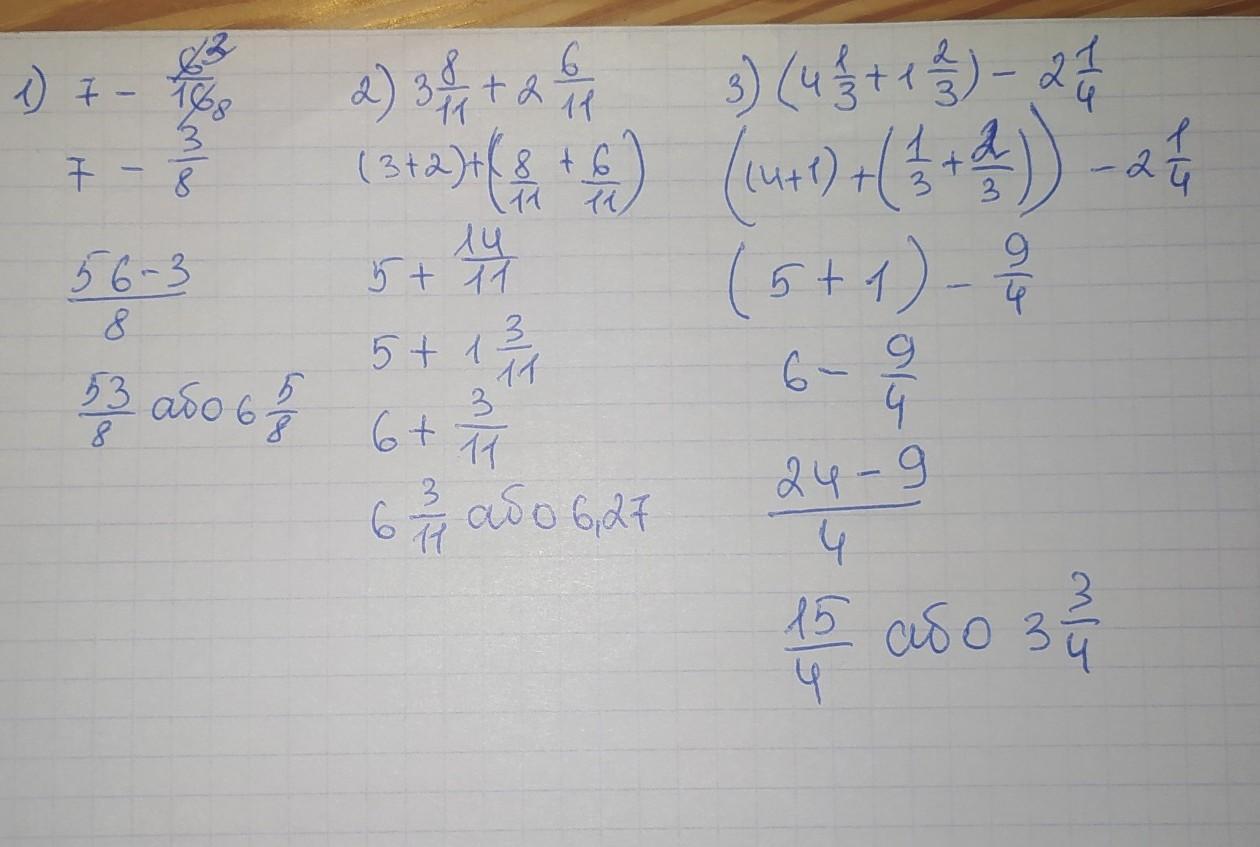 1) 7 - 6̸ 3/1̸6̸ 8
7 - 3/8
56-3/8
53/8 або 6 5/8
2) 3 8/11 + 2 6/11
(3+2)+(8/11 + 6/11)
5 + 14/11
5 + 1 3/11
6 + 3/11
6 3/11 або 6,27
3) (4 1/3 + 1 2/3) - 2 1/4
((4+1) + (1/3 + 2/3)) - 2 1/4
(5 + 1) - 9/4
6 - 9/4
24 - 9/4
15/4 або 3 3/4